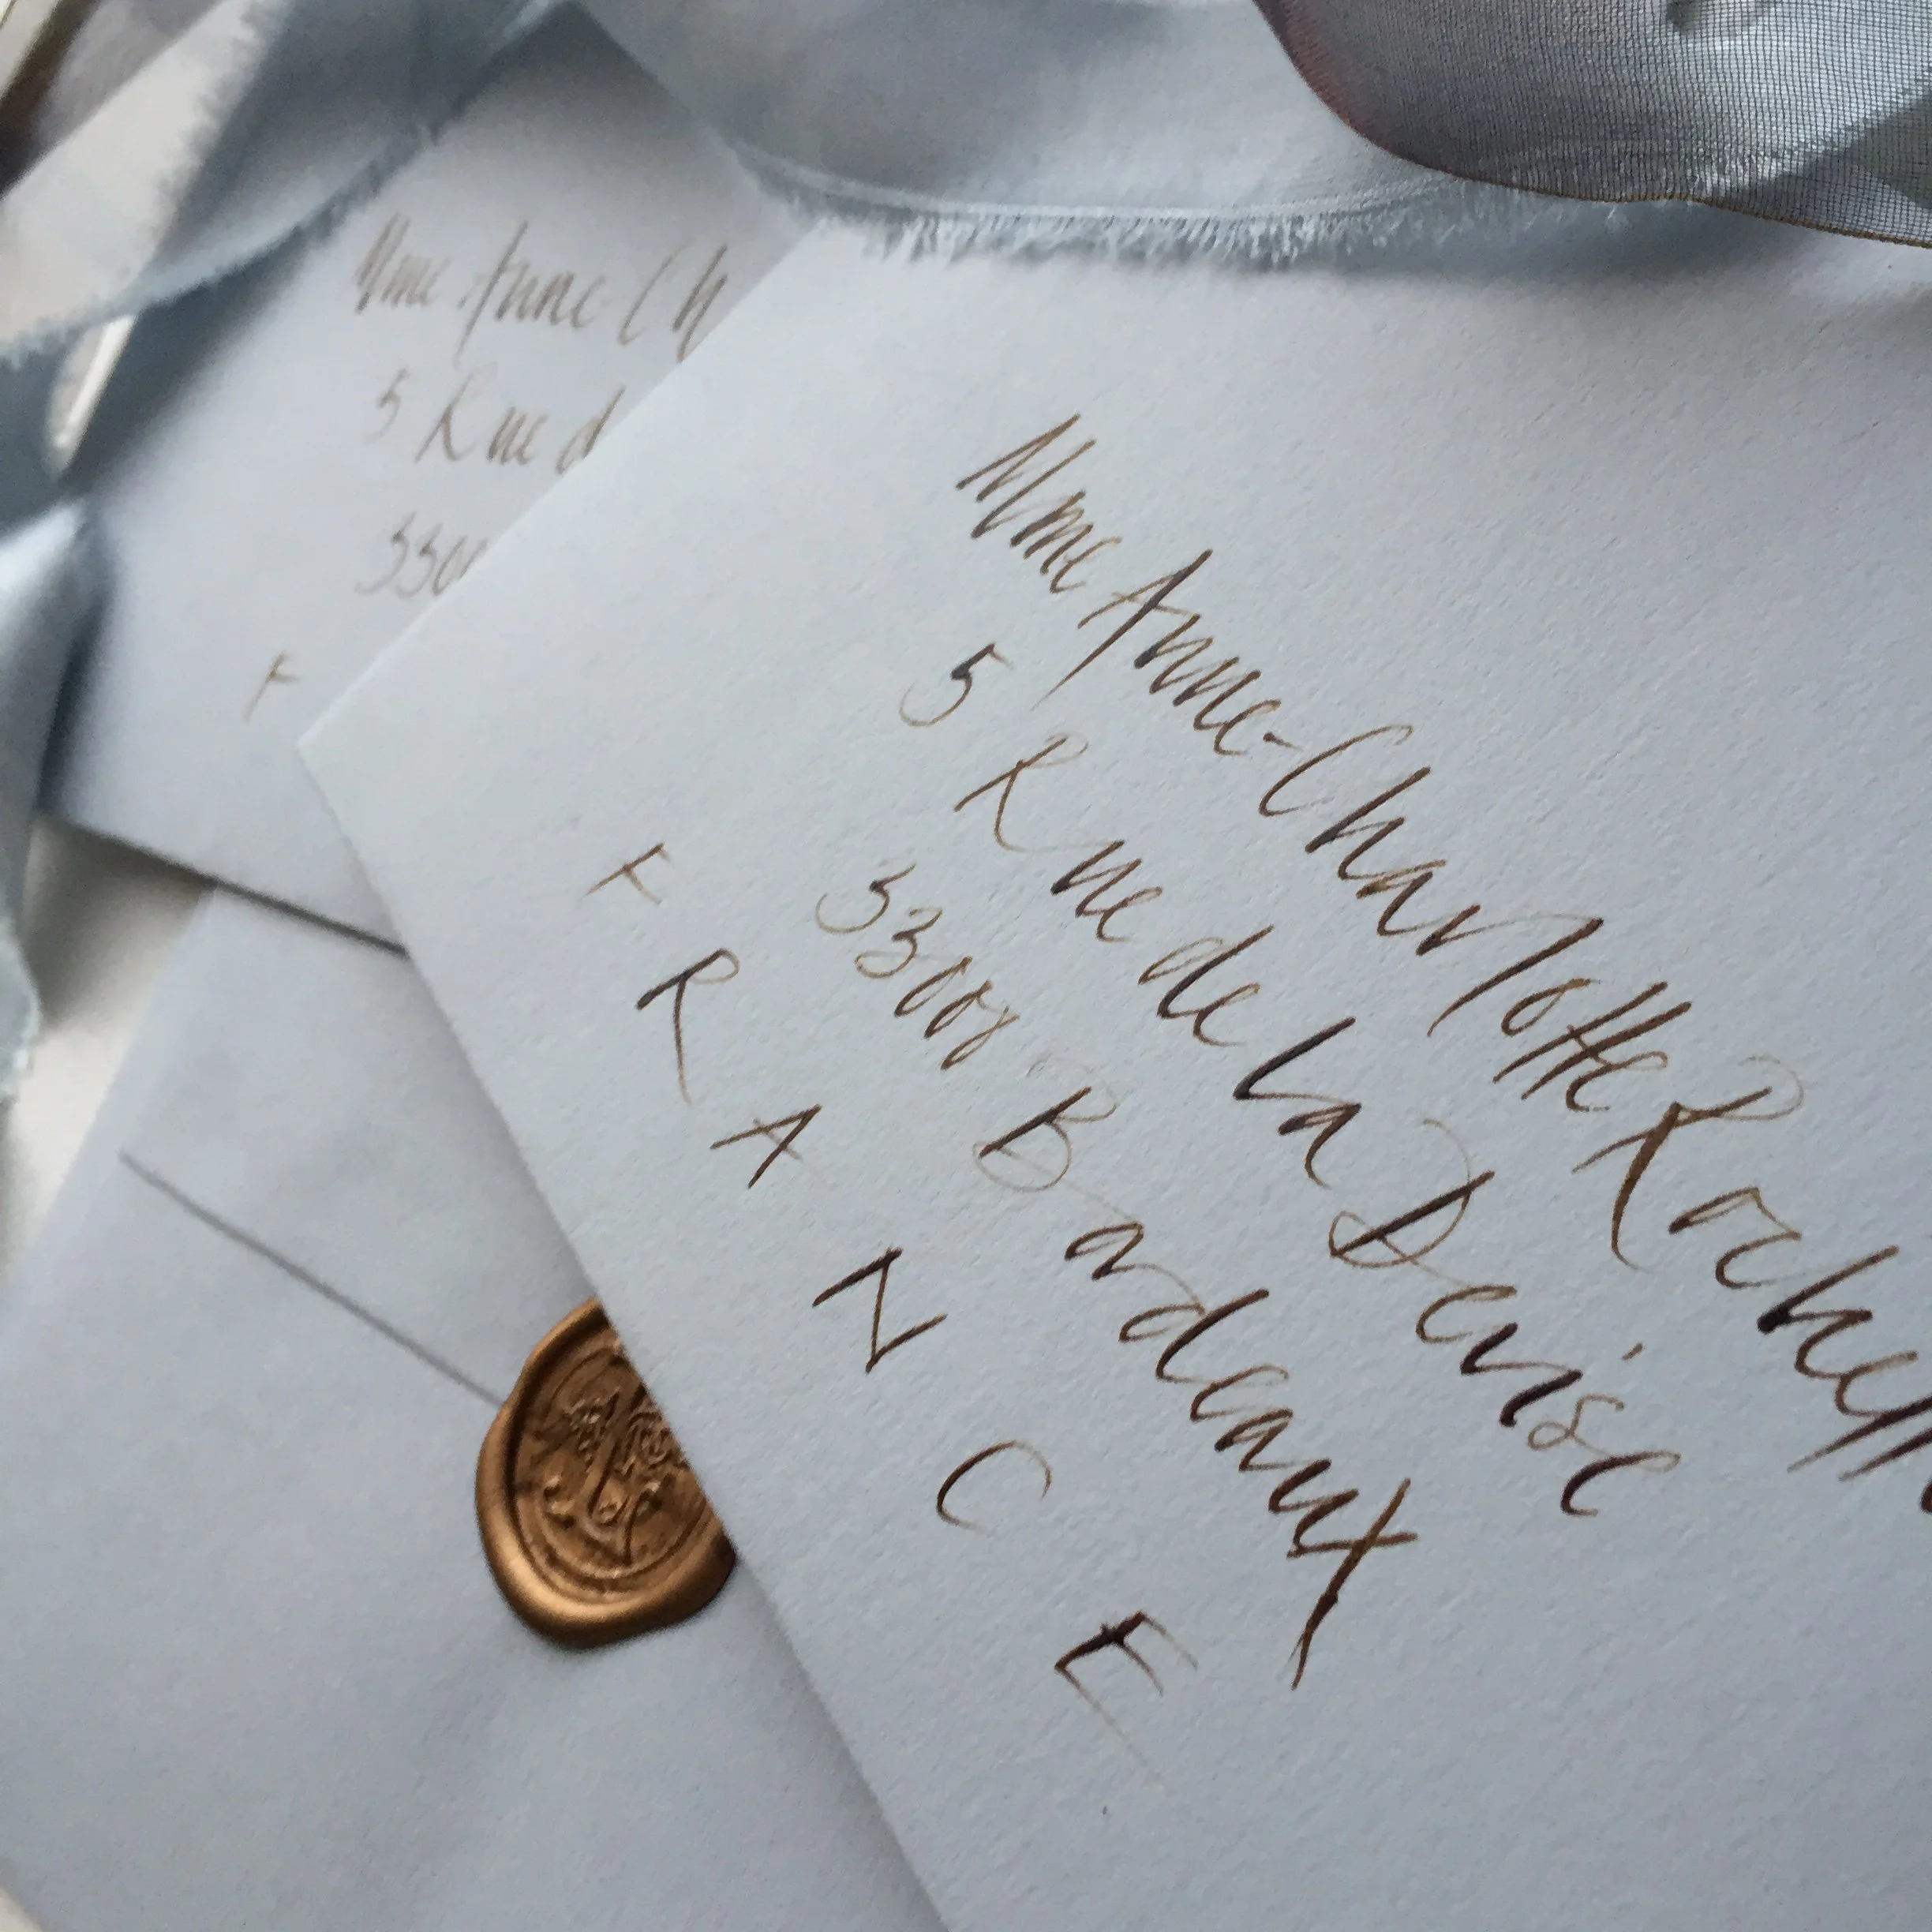 Mme Anne-Ch
5 Rue d
3300
F
Mme Anne-Charlotte Rocheff
5 Rue de La Devise
33000 Bordeaux
F R A N C E